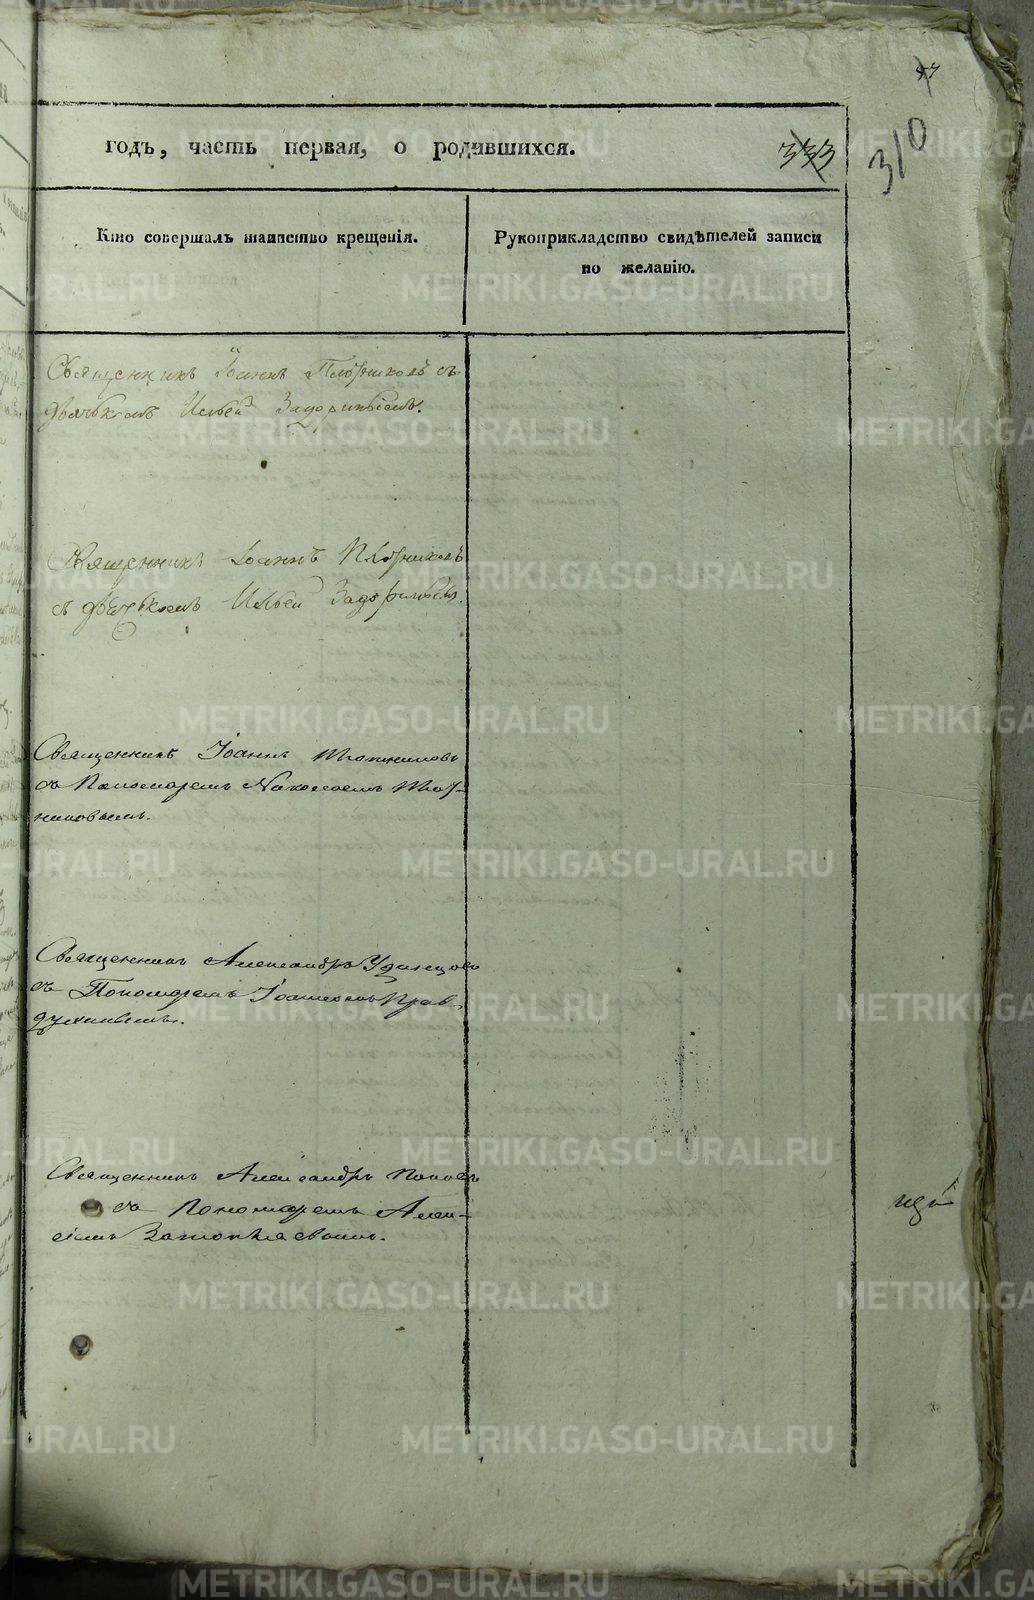 47
годъ, часть первая, о родившихся.
333
310
Кто совершалъ таинство крещенія.
Рукоприкладство свидѣтелей записи
по желанію.
Священникъ Іоаннъ Плотниковъ съ
дьячькомъ Ильей Задоринымъ.
Священникъ Іоаннъ Плотниковъ
съ дьячькомъ Ильей Задоринымъ.
Священникъ Іоаннъ
съ Пономаремъ Николаемъ
никовымъ.
Священникъ Александръ Удинцовъ
съ Пономаремъ Іоанномъ Прав-
духинымъ.
Священникъ Александръ Поповъ
съ Пономаремъ Алек-
сіемъ
METRIKI.GASO-URAL.RU